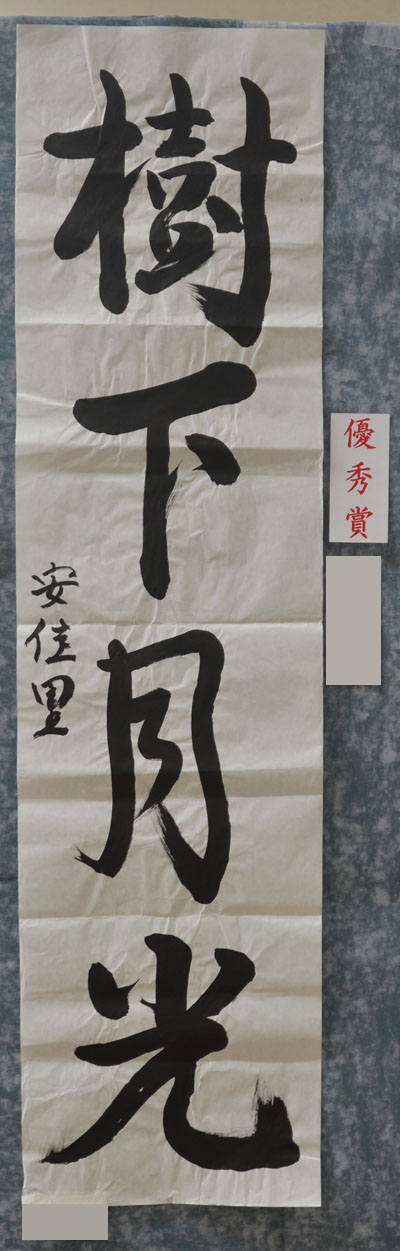 優秀賞
樹下月光
安佳里